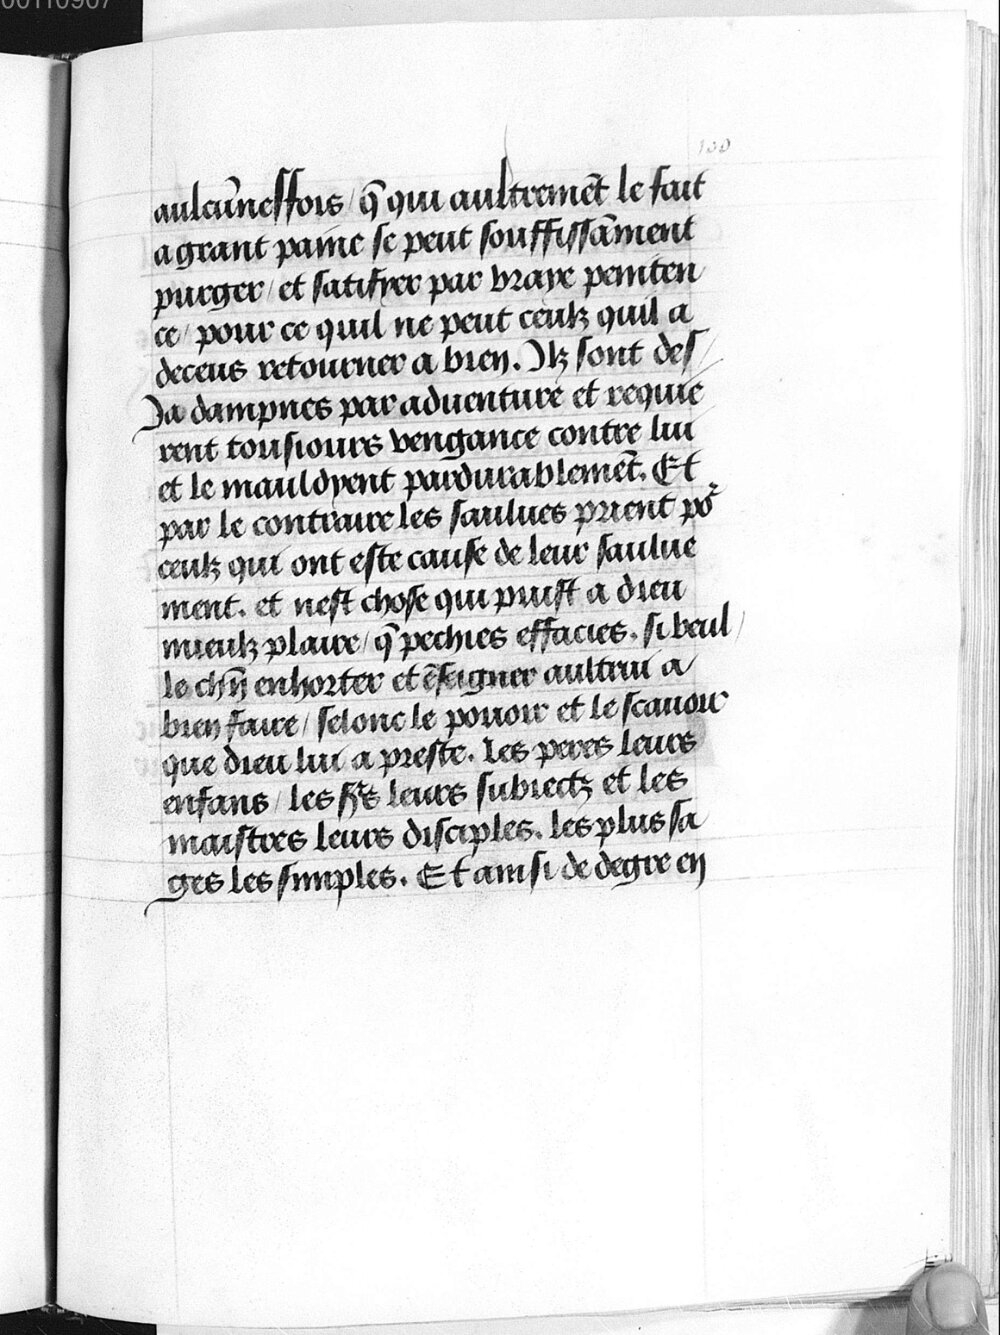 00110907
100
aulcũnesffois / q̃ qui aultremẽt le fait
a grant paine se peut souffissãment
purger / et satifyer par vraye peniten
ce / pour ce quil ne peut ceulz quil a
deceus retourner a bien. Ilz sont des /
Ja dampnes par aduenture et requie
rent tousiours vengance contre lui
et le mauldyent pardurablemẽt. Et
par le contraire les saulues prient põ
ceulz qui ont este cause de leur saulue
ment. et nest chose qui puist a dieu
mieulz plaire / q̃ pechies effacies. si veul /
le chũ enhorter et ẽseigner aultrui a
bien faire / selonc le pouoir et le scauoir
que dieu lui a preste. Les peres leurs
enfans / les srs̃ leurs subiectz et les
maistres leurs disciples. les plus sa
ges les simples. Et ainsi de degre en